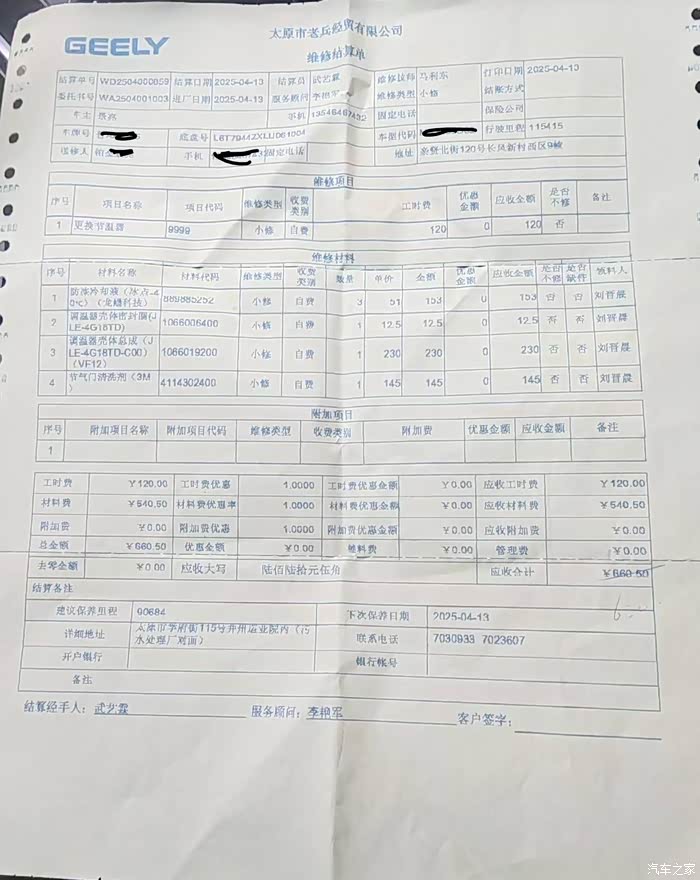 GEELY
太原市老兵经贸有限公司
维修结算单
结算单号 WD2504000059 结算日期 2025-04-13 结算员 武艺霖 维修技师 马利东 打印日期 2025-04-13
委托书号 WA2504001003 进厂日期 2025-04-13 服务顾问 维修类型 小修 结账方式
车主 手机 固定电话 保险公司
车牌号 底盘号 车型代码 行驶里程 115415
送修人 手机 固定电话 地址 亲贤北街120号长风新村西区9幢
维修项目
序号 项目名称 项目代码 维修类型 收费类别 工时费 优惠金额 应收金额 是否不修 备注
1 更换节温器 9999 小修 自费 120 0 120 否
维修材料
序号 材料名称 材料代码 维修类型 收费类别 数量 单价 金额 优惠金额 应收金额 是否不修 是否缺件 领料人
1 防冻冷却液（冰点-40℃）（龙蟠科技） 889885252 小修 自费 3 51 153 0 153 否 否 刘晋晨
2 调温器壳体密封圈(JLE-4G18TD) 1066006400 小修 自费 1 12.5 12.5 0 12.5 否 否 刘晋晨
3 调温器壳体总成（JLE-4G18TD-C00）（VF12） 1066019200 小修 自费 1 230 230 0 230 否 否 刘晋晨
4 节气门清洗剂（3M） 4114302400 小修 自费 1 145 145 0 145 否 否 刘晋晨
附加项目
序号 附加项目名称 附加项目代码 维修类型 收费类别 附加费 优惠金额 应收金额 备注
1
工时费 ￥120.00 工时费优惠 1.0000 工时费优惠金额 ￥0.00 应收工时费 ￥120.00
材料费 ￥540.50 材料费优惠率 1.0000 材料费优惠金额 ￥0.00 应收材料费 ￥540.50
附加费 ￥0.00 附加费优惠 1.0000 附加费优惠金额 ￥0.00 应收附加费 ￥0.00
总金额 ￥660.50 优惠金额 ￥0.00 辅料费 ￥0.00 管理费 ￥0.00
去零金额 ￥0.00 应收大写 陆佰陆拾元伍角 应收合计 ￥660.50
结算备注
建议保养里程 90684 下次保养日期 2025-04-13
详细地址 太原市学府街115号并州运业院内（污水处理厂对面） 联系电话 7030933 7023607
开户银行 银行帐号
备注
结算经手人：武艺霖 服务顾问：李艳军 客户签字：
汽车之家